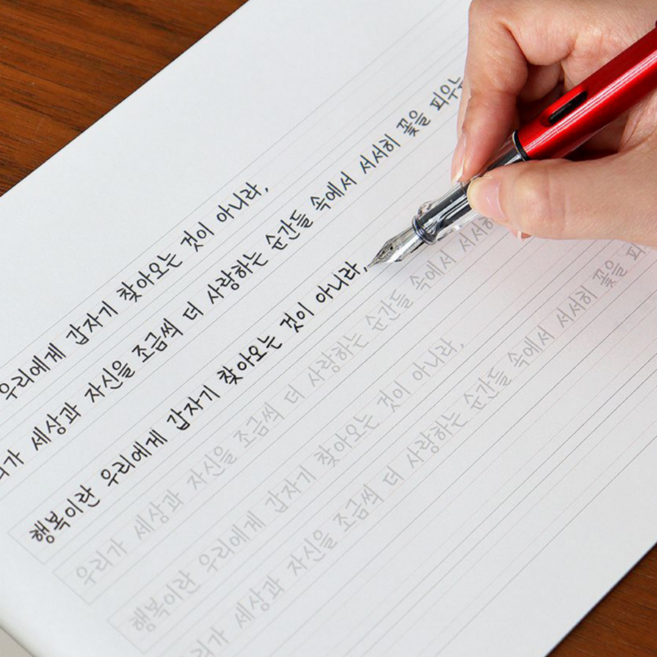 우리에게 갑자기 찾아오는 것이 아니라,
가 세상과 자신을 조금씩 더 사랑하는 순간들 속에서 서서히 꽃을 피우는
행복이란 우리에게 갑자기 찾아오는 것이 아니라,
우리가 세상과 자신을 조금씩 더 사랑하는 순간들 속에서 서서히
행복이란 우리에게 갑자기 찾아오는 것이 아니라,
우리가 세상과 자신을 조금씩 더 사랑하는 순간들 속에서 서서히 꽃을